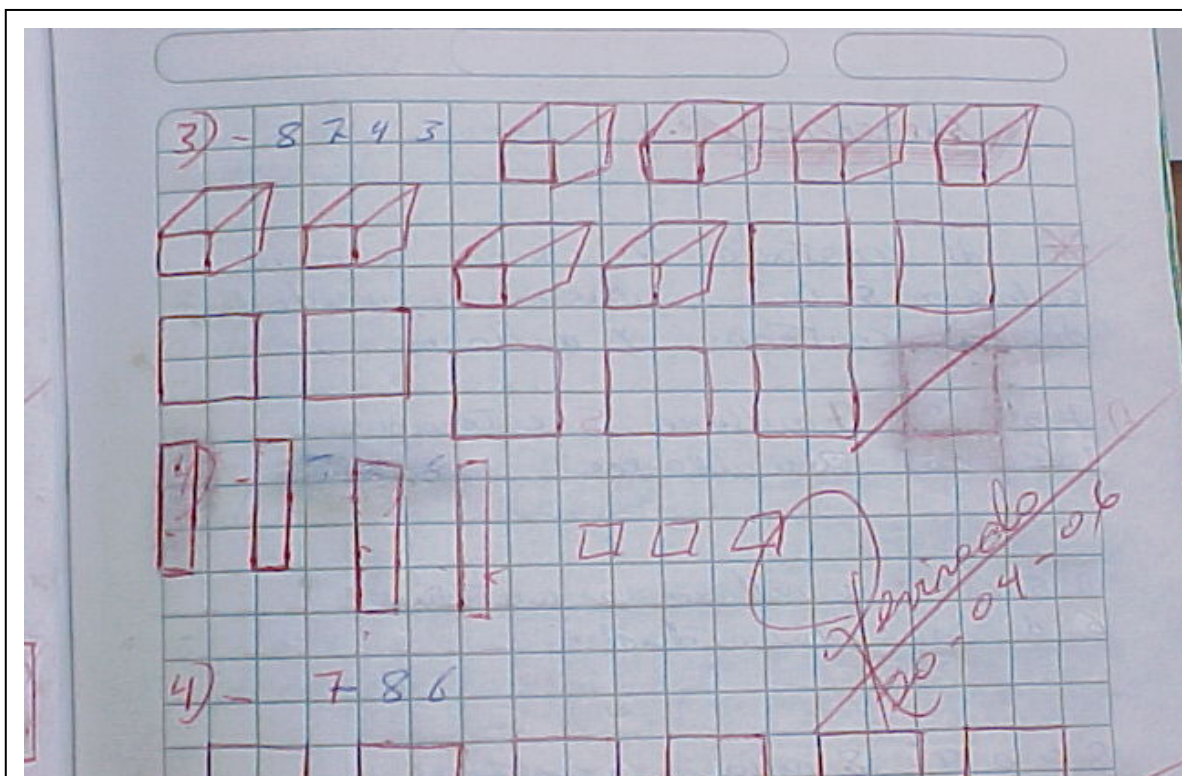 3) - 8 7 4 3
Revisado
20-04-06
4) - 7 8 6